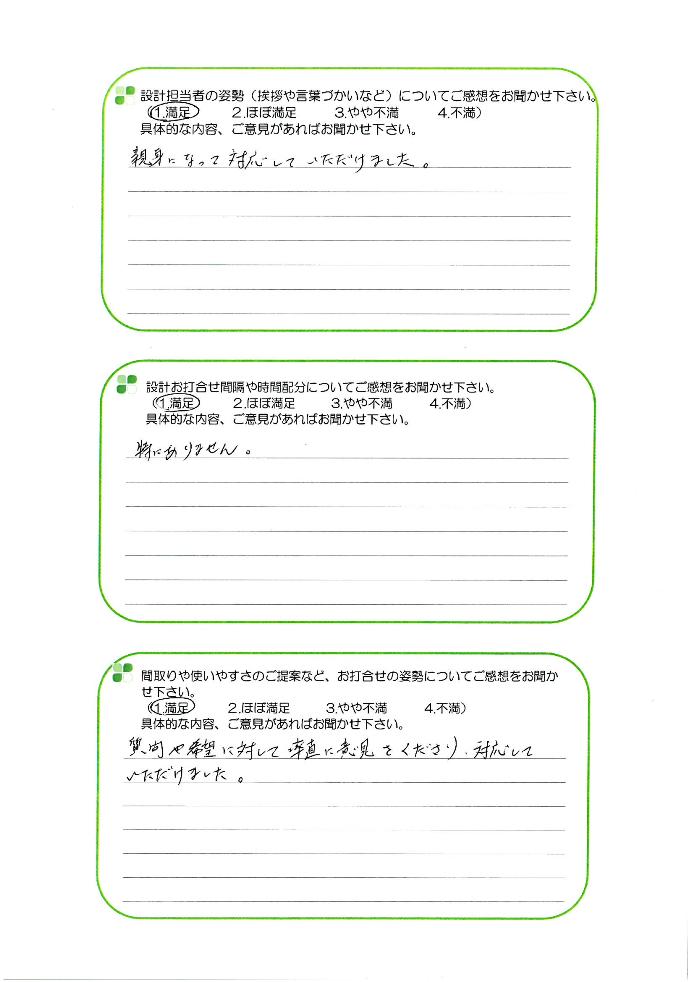 設計担当者の姿勢（挨拶や言葉づかいなど）についてご感想をお聞かせ下さい。
（1.満足　2.ほぼ満足　3.やや不満　4.不満）
具体的な内容、ご意見があればお聞かせ下さい。
親身になって対応していただけました。
設計お打合せ間隔や時間配分についてご感想をお聞かせ下さい。
（1.満足　2.ほぼ満足　3.やや不満　4.不満）
具体的な内容、ご意見があればお聞かせ下さい。
特にありません。
間取りや使いやすさのご提案など、お打合せの姿勢についてご感想をお聞か
せ下さい。
（1.満足　2.ほぼ満足　3.やや不満　4.不満）
具体的な内容、ご意見があればお聞かせ下さい。
質問や希望に対して率直に意見をくださり、対応して
いただけました。